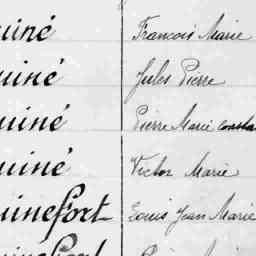 uiné François Marie
uiné Jules Pierre
uiné Pierre Marie
uiné Victor Marie
uinefort Louis Jean Marie